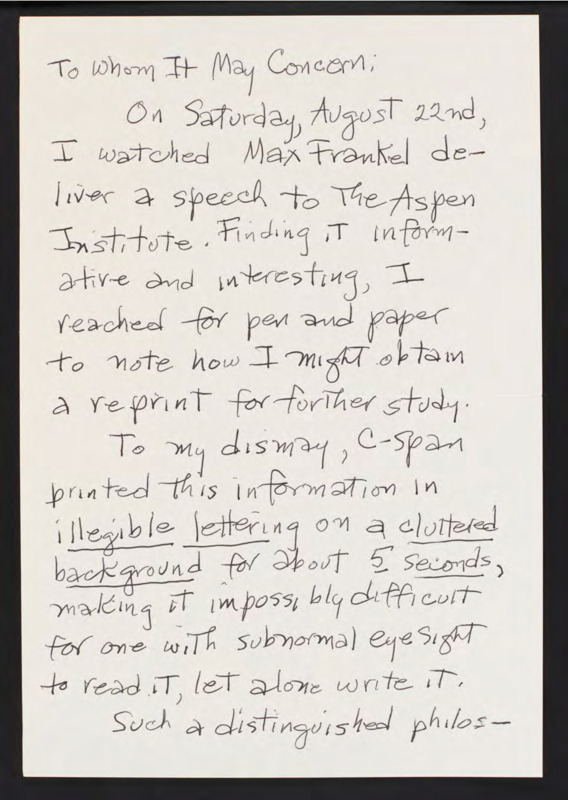 To Whom It May Concern;
On Saturday, August 22nd,
I watched Max Frankel de-
liver a speech to The Aspen
Institute. Finding it inform-
ative and interesting, I
reached for pen and paper
to note how I might obtain
a reprint for further study.
To my dismay, C-Span
printed this information in
illegible lettering on a cluttered
background for about 5 seconds,
making it impossibly difficult
for one with subnormal eyesight
to read it, let alone write it.
Such a distinguished philos-